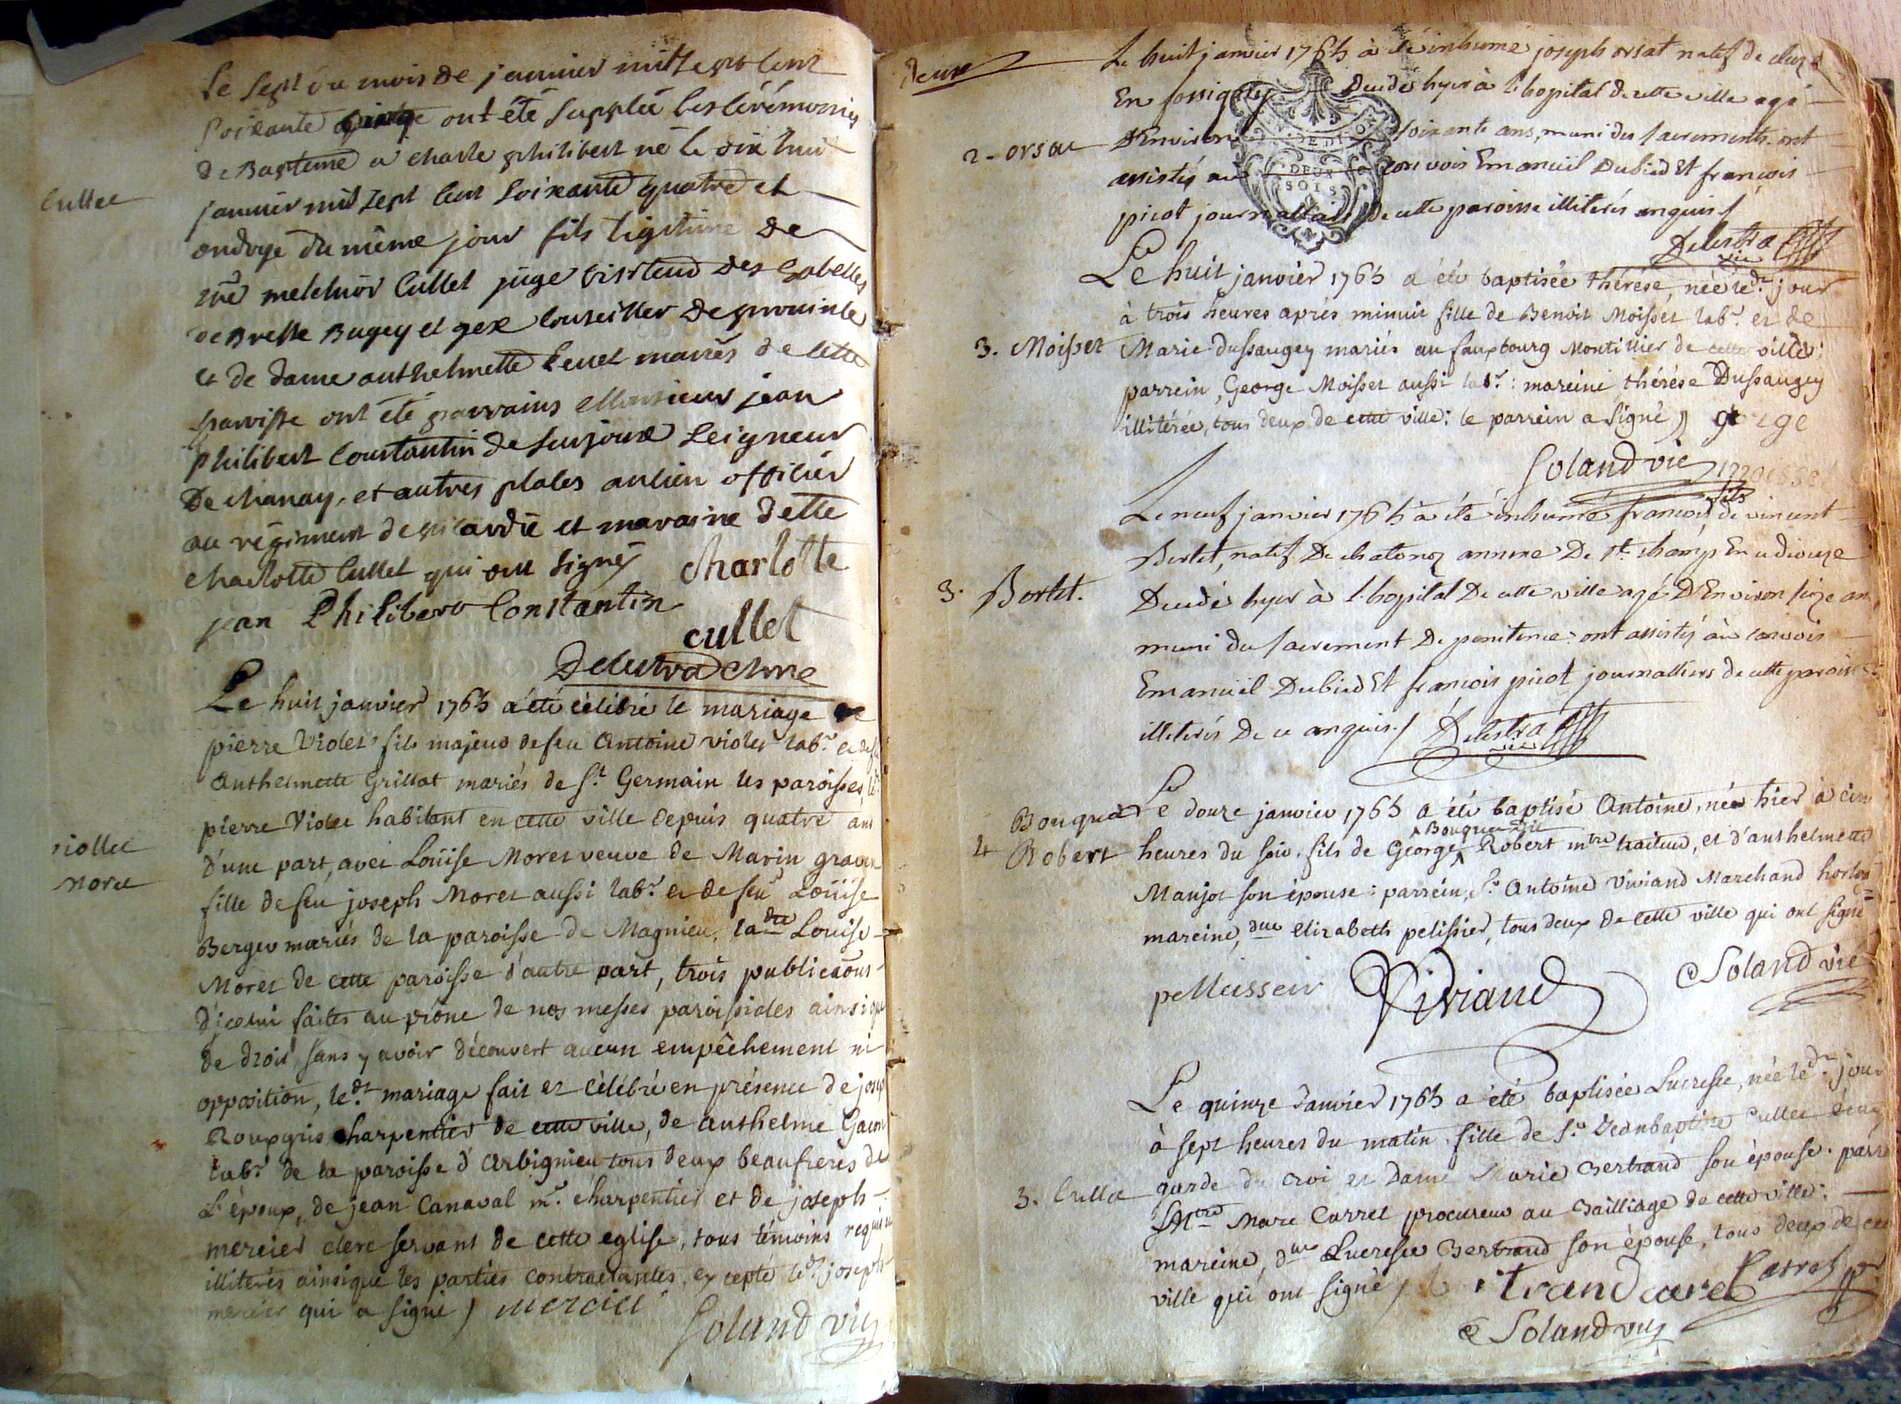 Cullet
Le sept du mois de janvier mil sept cent
soixante ont été supplée les cérémonies
de Bapteme a charle philibert né le dix huit
janvier mil sept cent soixante quatre et
ondoyé du même jour fils légitime de
melchior Cullet juge visiteur des gabelles
de Bresse Bugey et gex conseiller de province
et de dame anthelmette mariés de cette
paroisse ont été parrains Monsieur jean
philibert Constantin de surjoux seigneur
De chanay, et autres places ancien officier
au régiment de picardie et maraine dlle
charlotte Cullet qui ont signés charlotte
jean Philibert Constantin
cullet
Delestra cure
violet
moret
Le huit janvier 1765 a été célébré le mariage de
pierre Violet fils majeur de feu Antoine violet labr. et de
Anthelmette Grillat mariés de St Germain les paroisses, le
pierre Violet habitant en cette ville depuis quatre ans
d'une part, avec Loüise Moret veuve de Marin
fille de feu joseph Moret aussi labr. et de feu Loüise
Berger mariés de la paroisse de Magnieu, la dte Louise
Moret de cette paroisse d'autre part, trois publicaõns
d'jcelui faites au prône de nos messes paroissiales ainsi que
de droit sans y avoir découvert aucun empêchement ni
opposition, led.t mariage fait et célébré en présence de joseph
Roupgris charpentier de cette ville, de anthelme
labr. de la paroisse d'Arbignieu tous deux beaufreres de
L'époux, de jean Canaval me. charpentier et de joseph
mercier clerc servant de cette eglise, tous témoins requis
illiterés ainsi que les parties contractantes, excepté led.t joseph
mercier qui a signé / mercier
Soland vic
deux
2- orsat
Le huit janvier 1765 à été inhumé joseph orsat natif de
En fossigny Decedé hyer à L'hopital de cette ville agé
D'Environ soixante ans, muni des sacrements. ont
assistés au convois Emanuël Dubied Et françois
picot journalliers de cette paroisse illiterés enquis /
DEUX
SOLS
Delestra vic
3. Moisset
Le huit janvier 1765 a été baptisée thérése, née led.t jour
à trois heures aprés minuit fille de Benoit Moisset labr. et de
Marie Dussaugey mariés au fauxbourg Montillier de cette ville:
parrein, George Moisset aussi labr: mareine, thérése Dussaugey
illitérée, tous deux de cette ville: le parrein a signé / george
Soland vic moisset
3. Bertet.
Le neuf janvier 1765 à été inhumé françois fils de vincent
Bertet, natif De chatonoz annexe De st. champ En ce diocese
Decedé hyer à L'hopital De cette ville agé D'Environ seize ans
muni du sacrement De penitence: ont assisté au convois
Emanuël Dubied Et françois picot journalliers de cette paroisse
illiterés De ce enquis. / Delestra vic
4 Bouquet
Robert
Le douze janvier 1765 a été baptisé Antoine, né hier à cinq
heures du soir, fils de George Bouquet dit Robert mtre traiteur, et d'anthelmette
Manjot son épouse: parrein, Sr. Antoine Viviand Marchand horloger
mareine, dlle Elizabeth pelissier, tous deux de cette ville qui ont signé
pellissier Viviand Soland vic
3. Cullet
Le quinze Janvier 1765 a été baptisée Lucresse, née led.t jour
à sept heures du matin, fille de Sr. Jean baptiste Cullet
garde du Roi et Dame Marie Bertrand son épouse. parrein
Mtre Marc Carrel procureur au Bailliage de cette ville:
mareine, dme Lucresse Bertrand son épouse, tous deux de cette
ville qui ont signé / Bertrand carrel Carrel pr
Soland vic